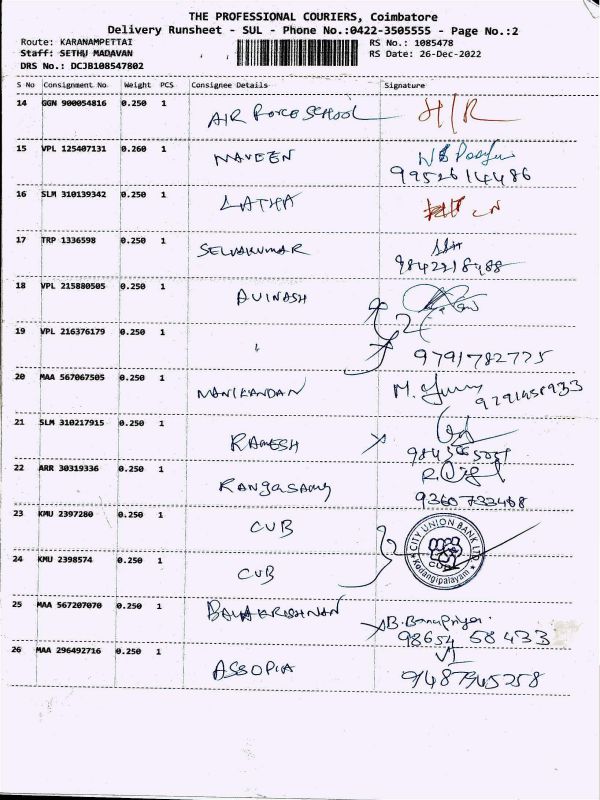 THE PROFESSIONAL COURIERS, Coimbatore
Delivery Runsheet - SUL - Phone No.:0422-3505555 - Page No.:2
Route: KARANAMPETTAI RS No.: 1085478
Staff: SETHU MADAVAN RS Date: 26-Dec-2022
DRS No.: DCJB108547802
S No Consignment No Weight PCS Consignee Details Signature
14 GGN 900054816 0.250 1 AIR FORCE SCHOOL H/R
15 VPL 125407131 0.260 1 NAVEEN
9952614486
16 SLM 310139342 0.250 1 LATHA
17 TRP 1336598 0.250 1 SELVAKUMAR
9842218488
18 VPL 215880505 0.250 1 AVINASH
19 VPL 216376179 0.250 1 "
9791782775
20 MAA 567067505 0.250 1 MANIKANDAN
21 SLM 310217915 0.250 1 RAMESH
22 ARR 30319336 0.250 1 Rangasamy
9360733468
23 KMU 2397280 0.250 1 CUB
CITY UNION BANK LTD
CUB
Kodangipalayam
24 KMU 2398574 0.250 1 CUB
25 MAA 567207070 0.250 1 BALAKRISHNAN B. Banupriya.
98654 58433
26 MAA 296492716 0.250 1 ASSOPIA
9487945258